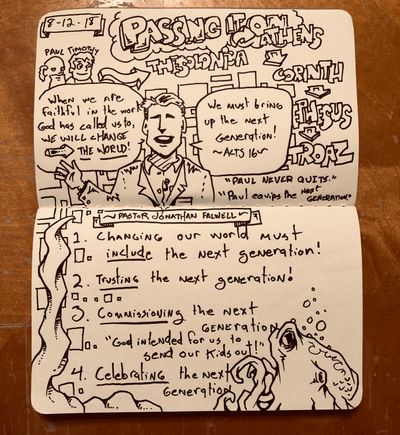 8-12-18
PASSING IT ON
ATHENS
PAUL TIMOTHY
THESSLONICA
CORINTH
EPHESUS
TROAZ
When we are
faithful in the work
God has called us to,
WE WILL CHANGE
THE WORLD!
We must bring
up the next
Generation!
~ACTS 16~
"PAUL NEVER QUITS."
"Paul equips the next
GENERATION."
~PASTOR JONATHAN FALWELL~
1. CHANGING our world must
include the next generation!
2. Trusting the next generation!
3. Commissioning the next
GENERATION
"God intended for us to
send our kids out!"
4. Celebrating the next
Generation